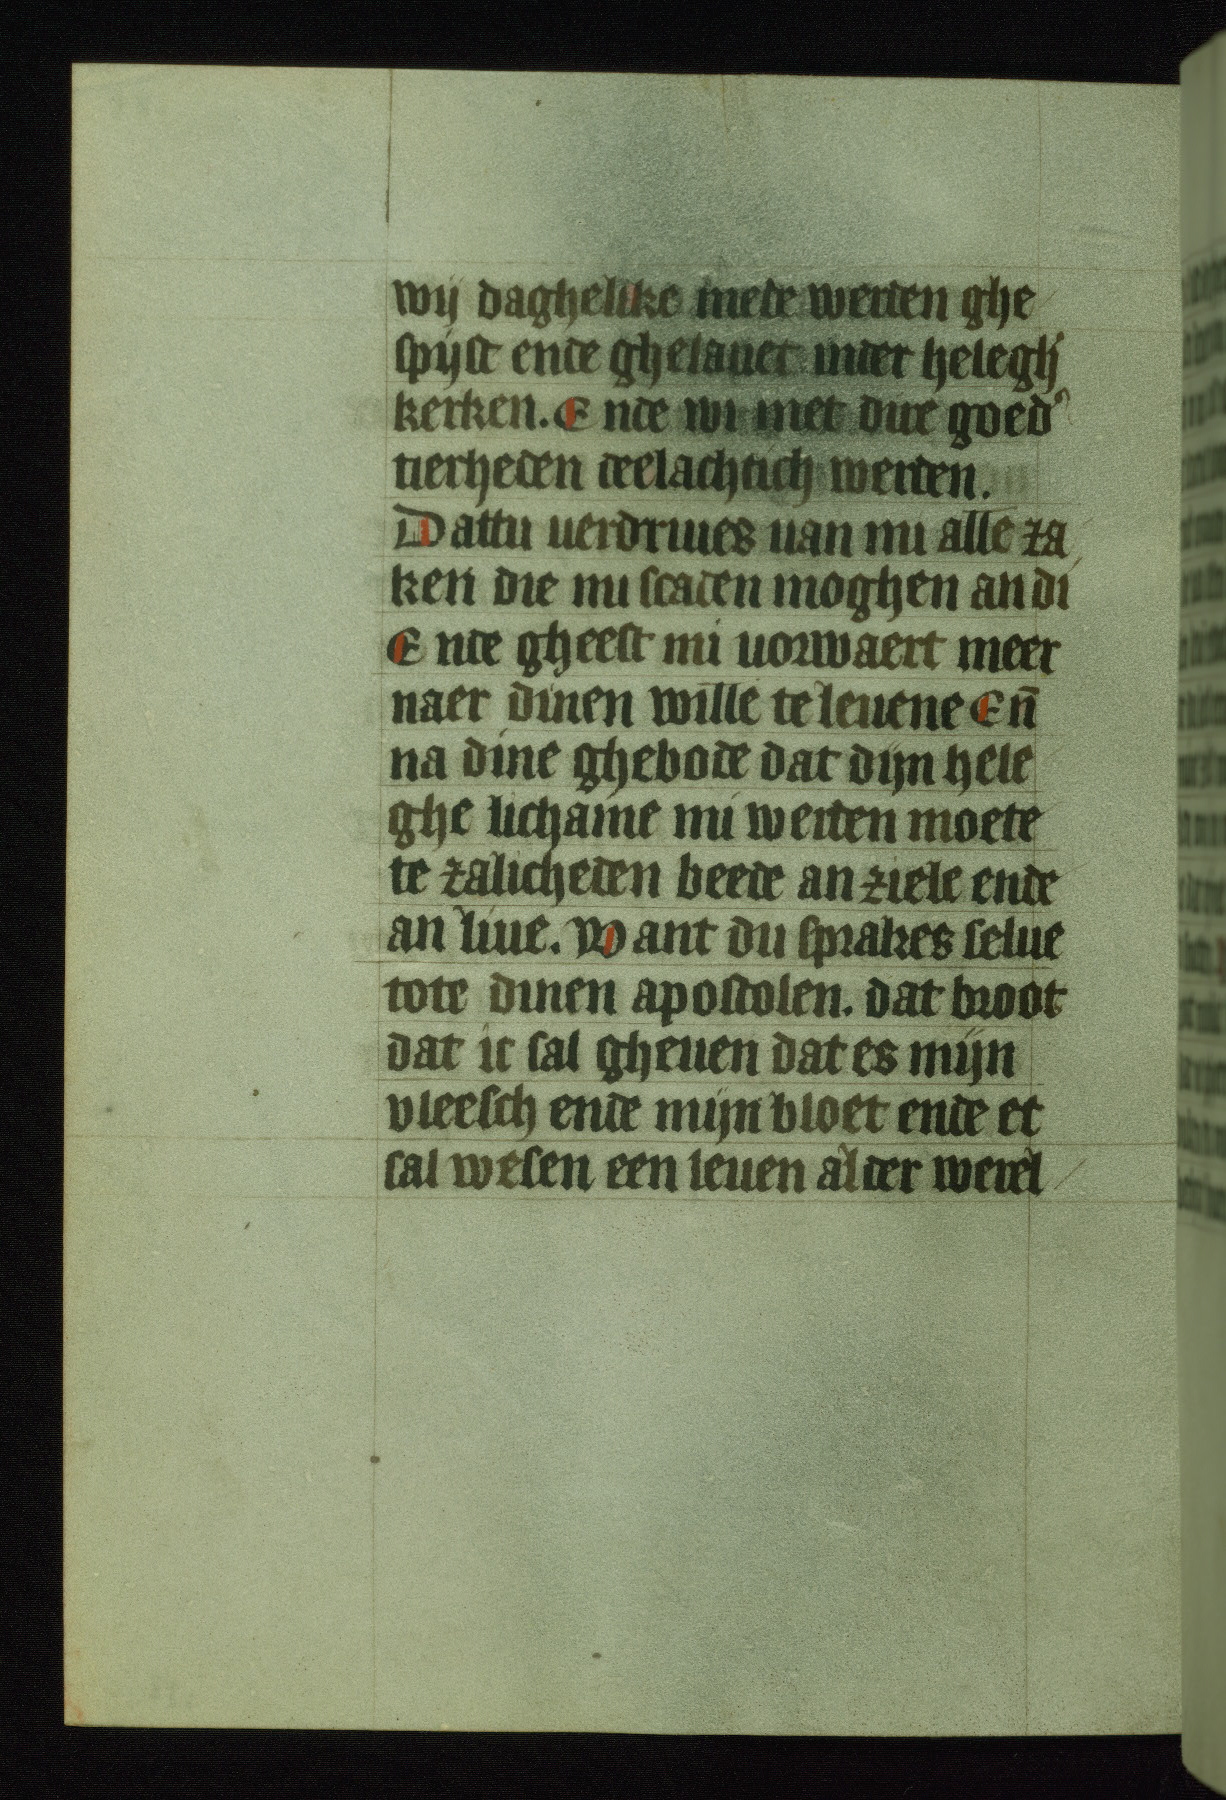 wij daghelike mede werden ghe
spijst ende ghelauet inder helegh'
kerken. Ende wi met dire goed'
tierheden deelachtich werden.
Dattu uerdriues uan mi alle za
ken die mi scaden moghen an di
Ende gheeft mi uorwaert meer
naer dinen wille te leuene En̄
na dine ghebode dat dijn hele
ghe lichame mi werden moete
te zalicheden beede an ziele ende
an liue. Want du sprakes selue
tote dinen apostolen. dat broot
dat ic sal gheuen dat es mijn
vleesch ende mijn bloet ende et
sal wesen een leuen alder werel